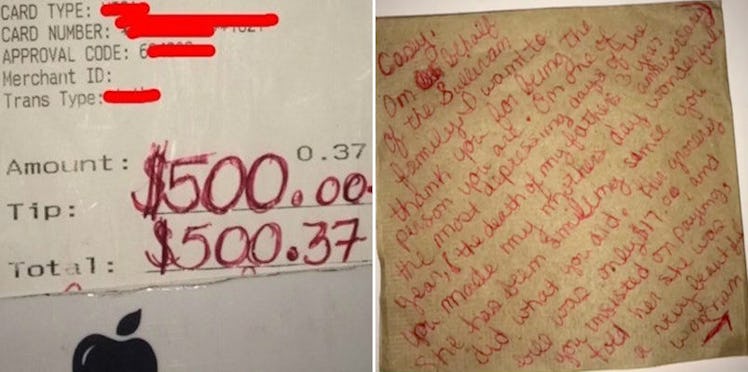 CARD TYPE:
CARD NUMBER:
APPROVAL CODE: 6
Merchant ID:
Trans Type:
Amount: 0.37
Tip: $500.00
Total: $500.37
Casey,
On behalf
of the Sullivan
family I want to
thank you for being the
person you are. On one of
the most depressing days of the
year, (the death of my father's 3 year anniversary)
you made my mothers day wonderful.
She has been smiling since you
did what you did. the grocery
bill was only $17.00 and
you insisted on paying,
told her she was
a very beautiful
woman